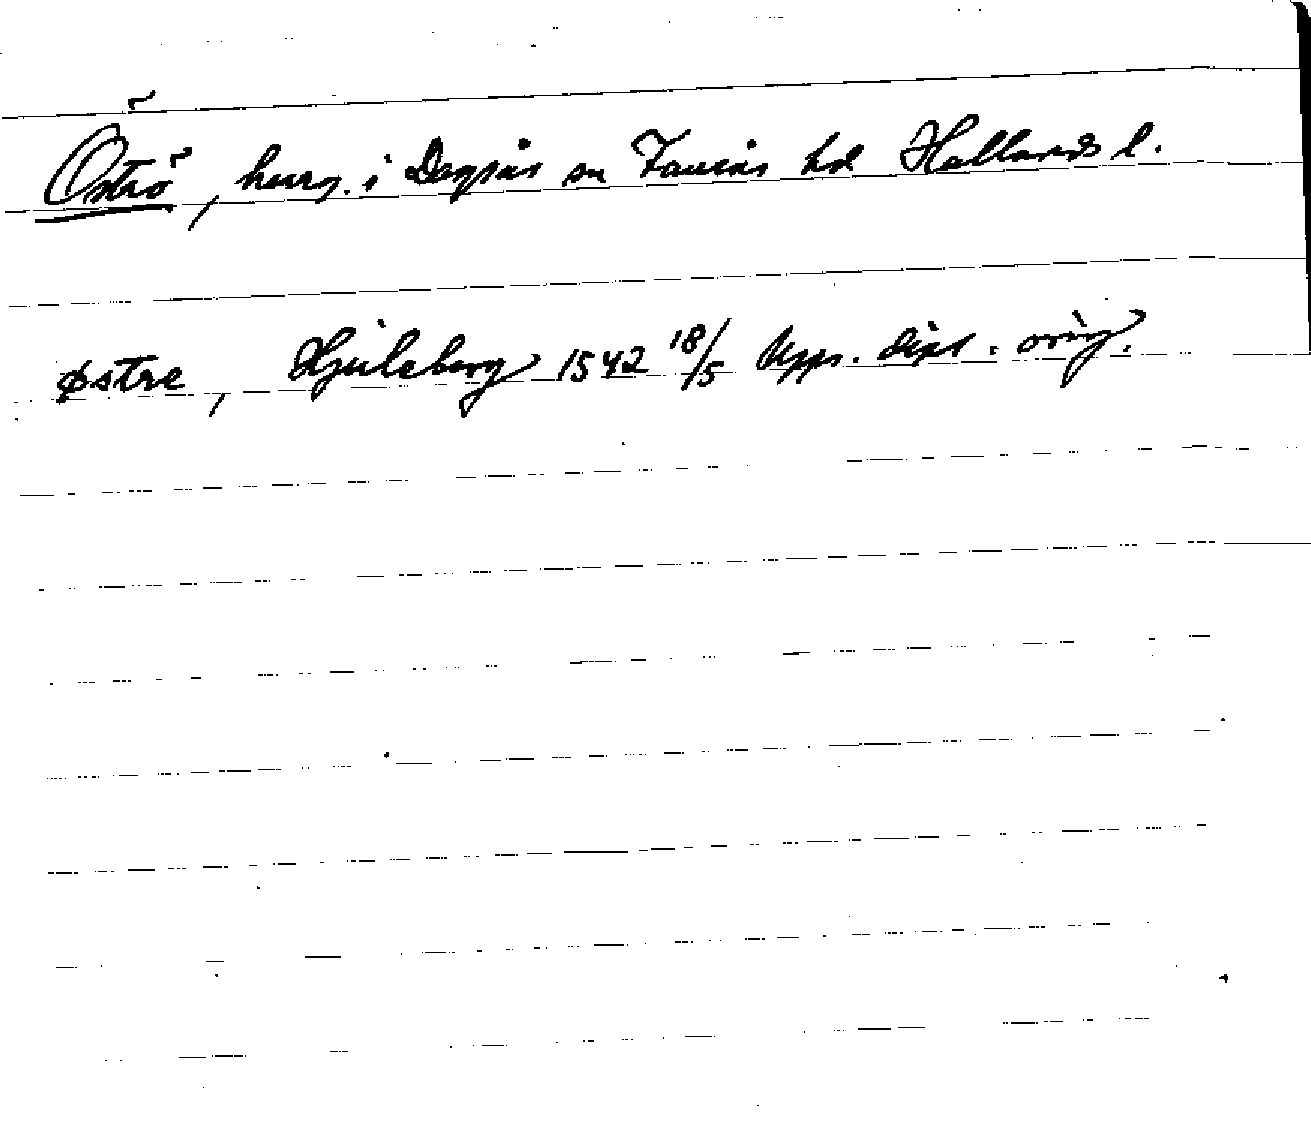 Öströ, herrg. i Dagsås sn Faurås hd Hallands l.
østre, Hjuleberg 1542 18/5 Upps. dipl. orig.